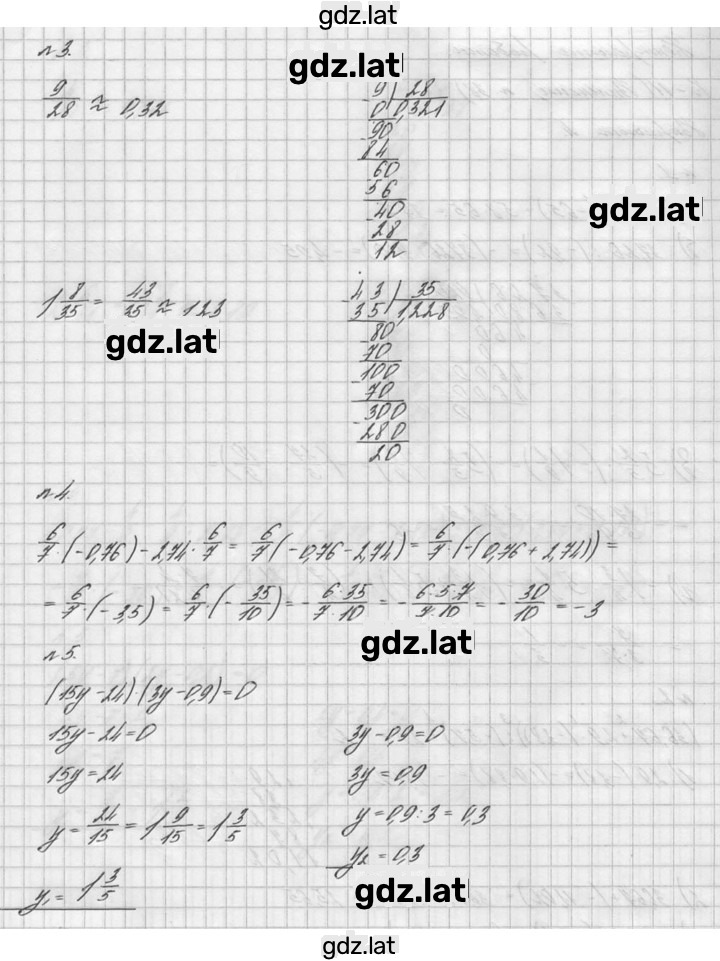 gdz.lat
n 3.
gdz.lat
9/28 ≈ 0,32
9 | 28
0 0,321
90
84
60
56
40
28
12
gdz.lat
1 8/35 = 43/35 ≈ 1 2 3
gdz.lat
43 | 35
35 1,228
80
70
100
70
300
280
20
n 4.
6/7 · (-0,76) - 2,74 · 6/7 = 6/7 (-0,76 - 2,74) = 6/7 · (-(0,76 + 2,74)) =
= 6/7 · (-3,5) = 6/7 · (-35/10) = -6·35/7·10 = -6·5·7/7·10 = -30/10 = -3
gdz.lat
n 5.
(15y - 24) · (3y - 0,9) = 0
15y - 24 = 0
3y - 0,9 = 0
15y = 24
3y = 0,9
y = 24/15 = 1 9/15 = 1 3/5
y = 0,9 : 3 = 0,3
y₂ = 0,3
y₁ = 1 3/5
gdz.lat
gdz.lat